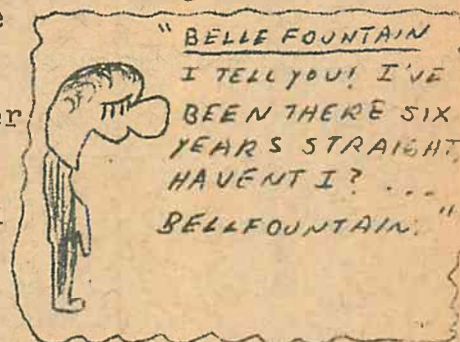 " BELLE FOUNTAIN
I TELL YOU! I'VE
BEEN THERE SIX
YEARS STRAIGHT,
HAVENT I? ...
BELLFOUNTAIN."